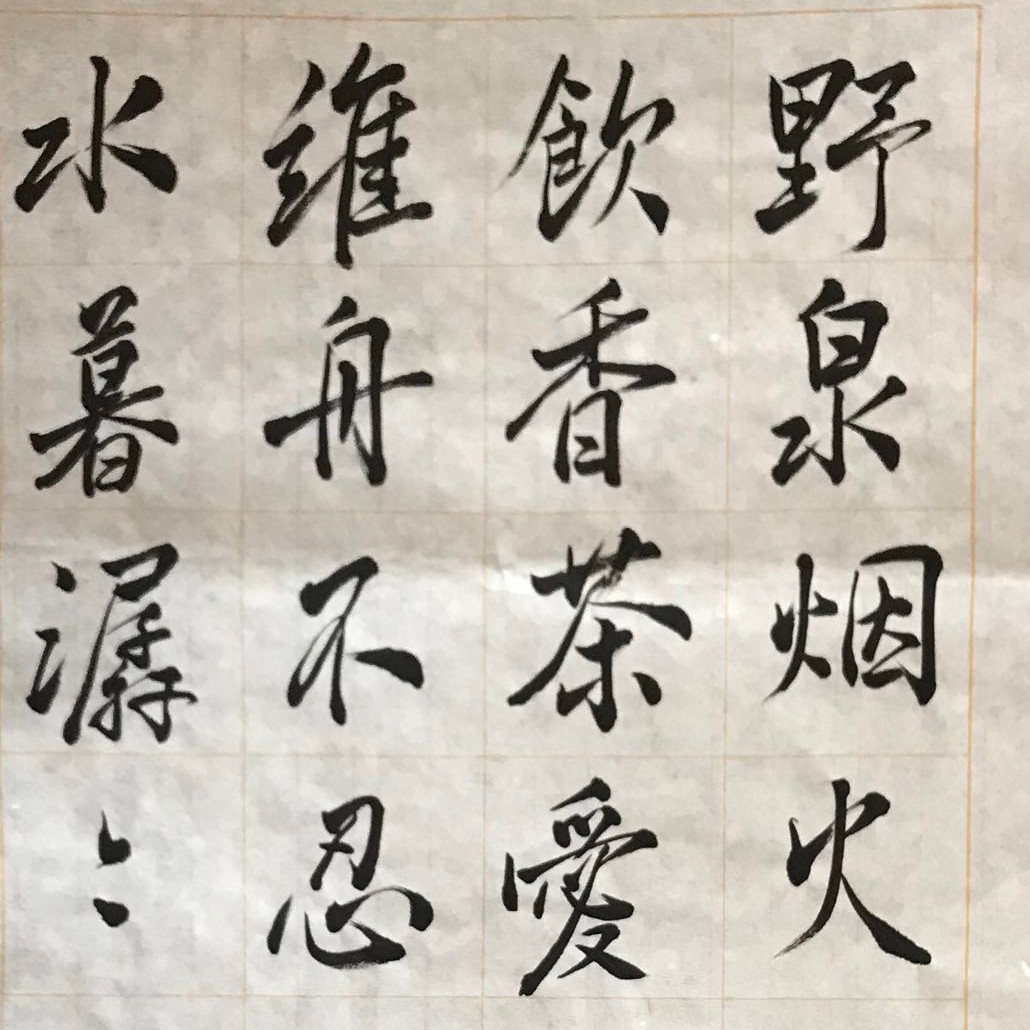 野泉烟火
飲香茶愛
維舟不忍
水暮潺〻